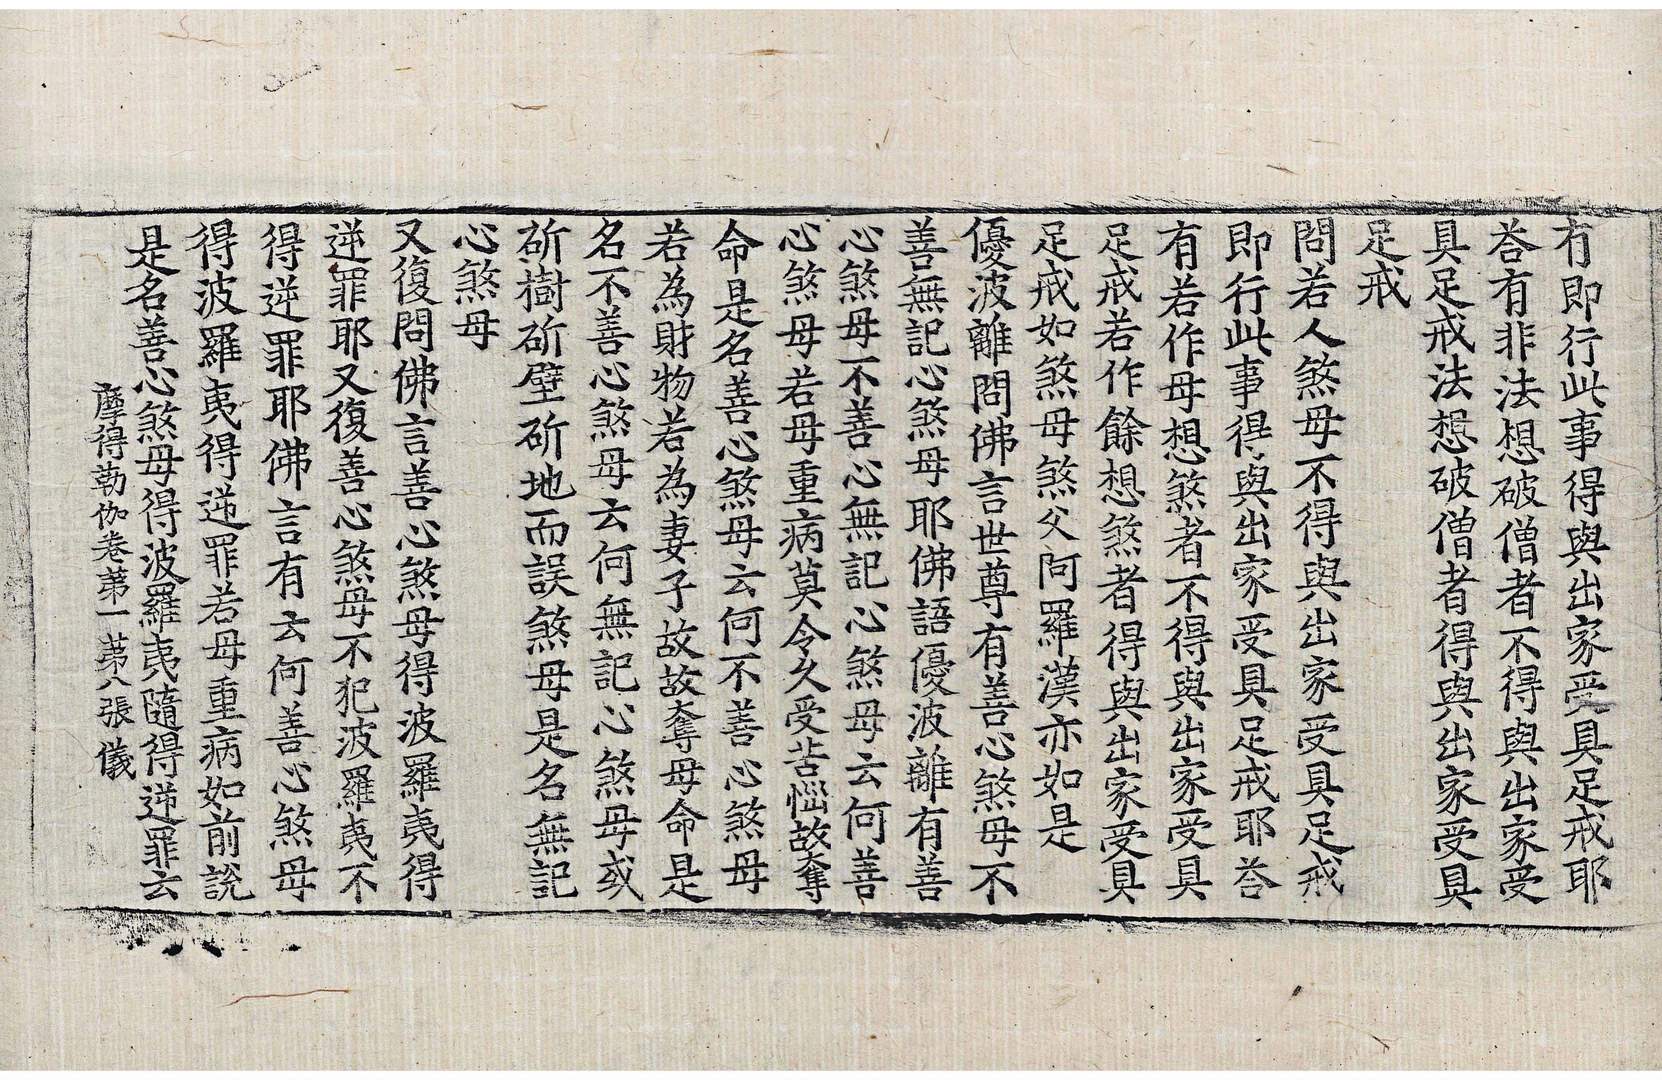 有即行此事得與出家受具足戒耶
荅有非法想破僧者不得與出家受
具足戒法想破僧者得與出家受具
足戒
問若人煞母不得與出家受具足戒
即行此事得與出家受具足戒耶荅
有若作母想煞者不得與出家受具
足戒若作餘想煞者得與出家受具
足戒如煞母煞父阿羅漢亦如是
優波離問佛言世尊有善心煞母不
善無記心煞母耶佛語優波離有善
心煞母不善心無記心煞母云何善
心煞母若母重病莫令久受苦惱故奪
命是名善心煞母云何不善心煞母
若為財物若為妻子故故奪母命是
名不善心煞母云何無記心煞母或
斫樹斫壁斫地而誤煞母是名無記
心煞母
又復問佛言善心煞母得波羅夷得
逆罪耶又復善心煞母不犯波羅夷不
得逆罪耶佛言有云何善心煞母
得波羅夷得逆罪若母重病如前說
是名善心煞母得波羅夷隨得逆罪云
摩得勒伽卷第一 第八張 儀